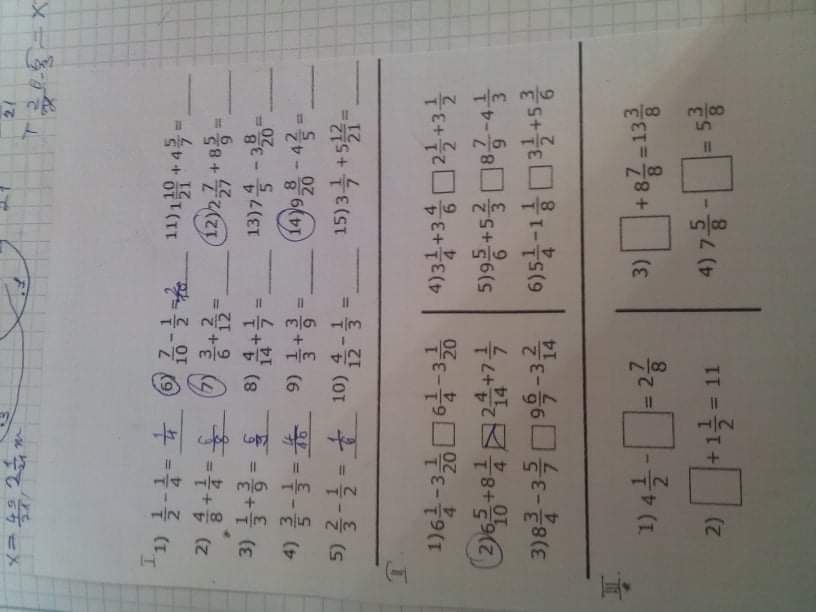 I
1) 1/2 - 1/4 = 1/4
2) 4/8 + 1/4 = 6/8
3) 1/3 + 3/9 = 6/9
4) 3/5 - 1/3 = 4/15
5) 2/3 - 1/2 = 1/6
6) 7/10 - 1/2 = 2/10
7) 3/6 + 2/12 = ____
8) 4/14 + 1/7 = ____
9) 1/3 + 3/9 = ____
10) 4/12 - 1/3 = ____
11) 1 10/21 + 4 5/7 = ____
12) 2 7/27 + 8 5/9 = ____
13) 7 4/5 - 3 8/20 = ____
14) 9 8/20 - 4 2/5 = ____
15) 3 1/7 + 5 12/21 = ____
II.
1) 6 1/4 - 3 1/20 □ 6 1/4 - 3 1/20
2) 6 5/10 + 8 1/4 > 2 4/14 + 7 1/7
3) 8 3/4 - 3 5/7 □ 9 6/7 - 3 2/14
4) 3 1/4 + 3 4/6 □ 2 1/2 + 3 1/2
5) 9 5/6 + 5 2/3 □ 8 7/9 - 4 1/3
6) 5 1/4 - 1 1/8 □ 3 1/2 + 5 3/6
III.
1) 4 1/2 - □ = 2 7/8
2) □ + 1 1/2 = 11
3) □ + 8 7/8 = 13 3/8
4) 7 5/8 - □ = 5 3/8